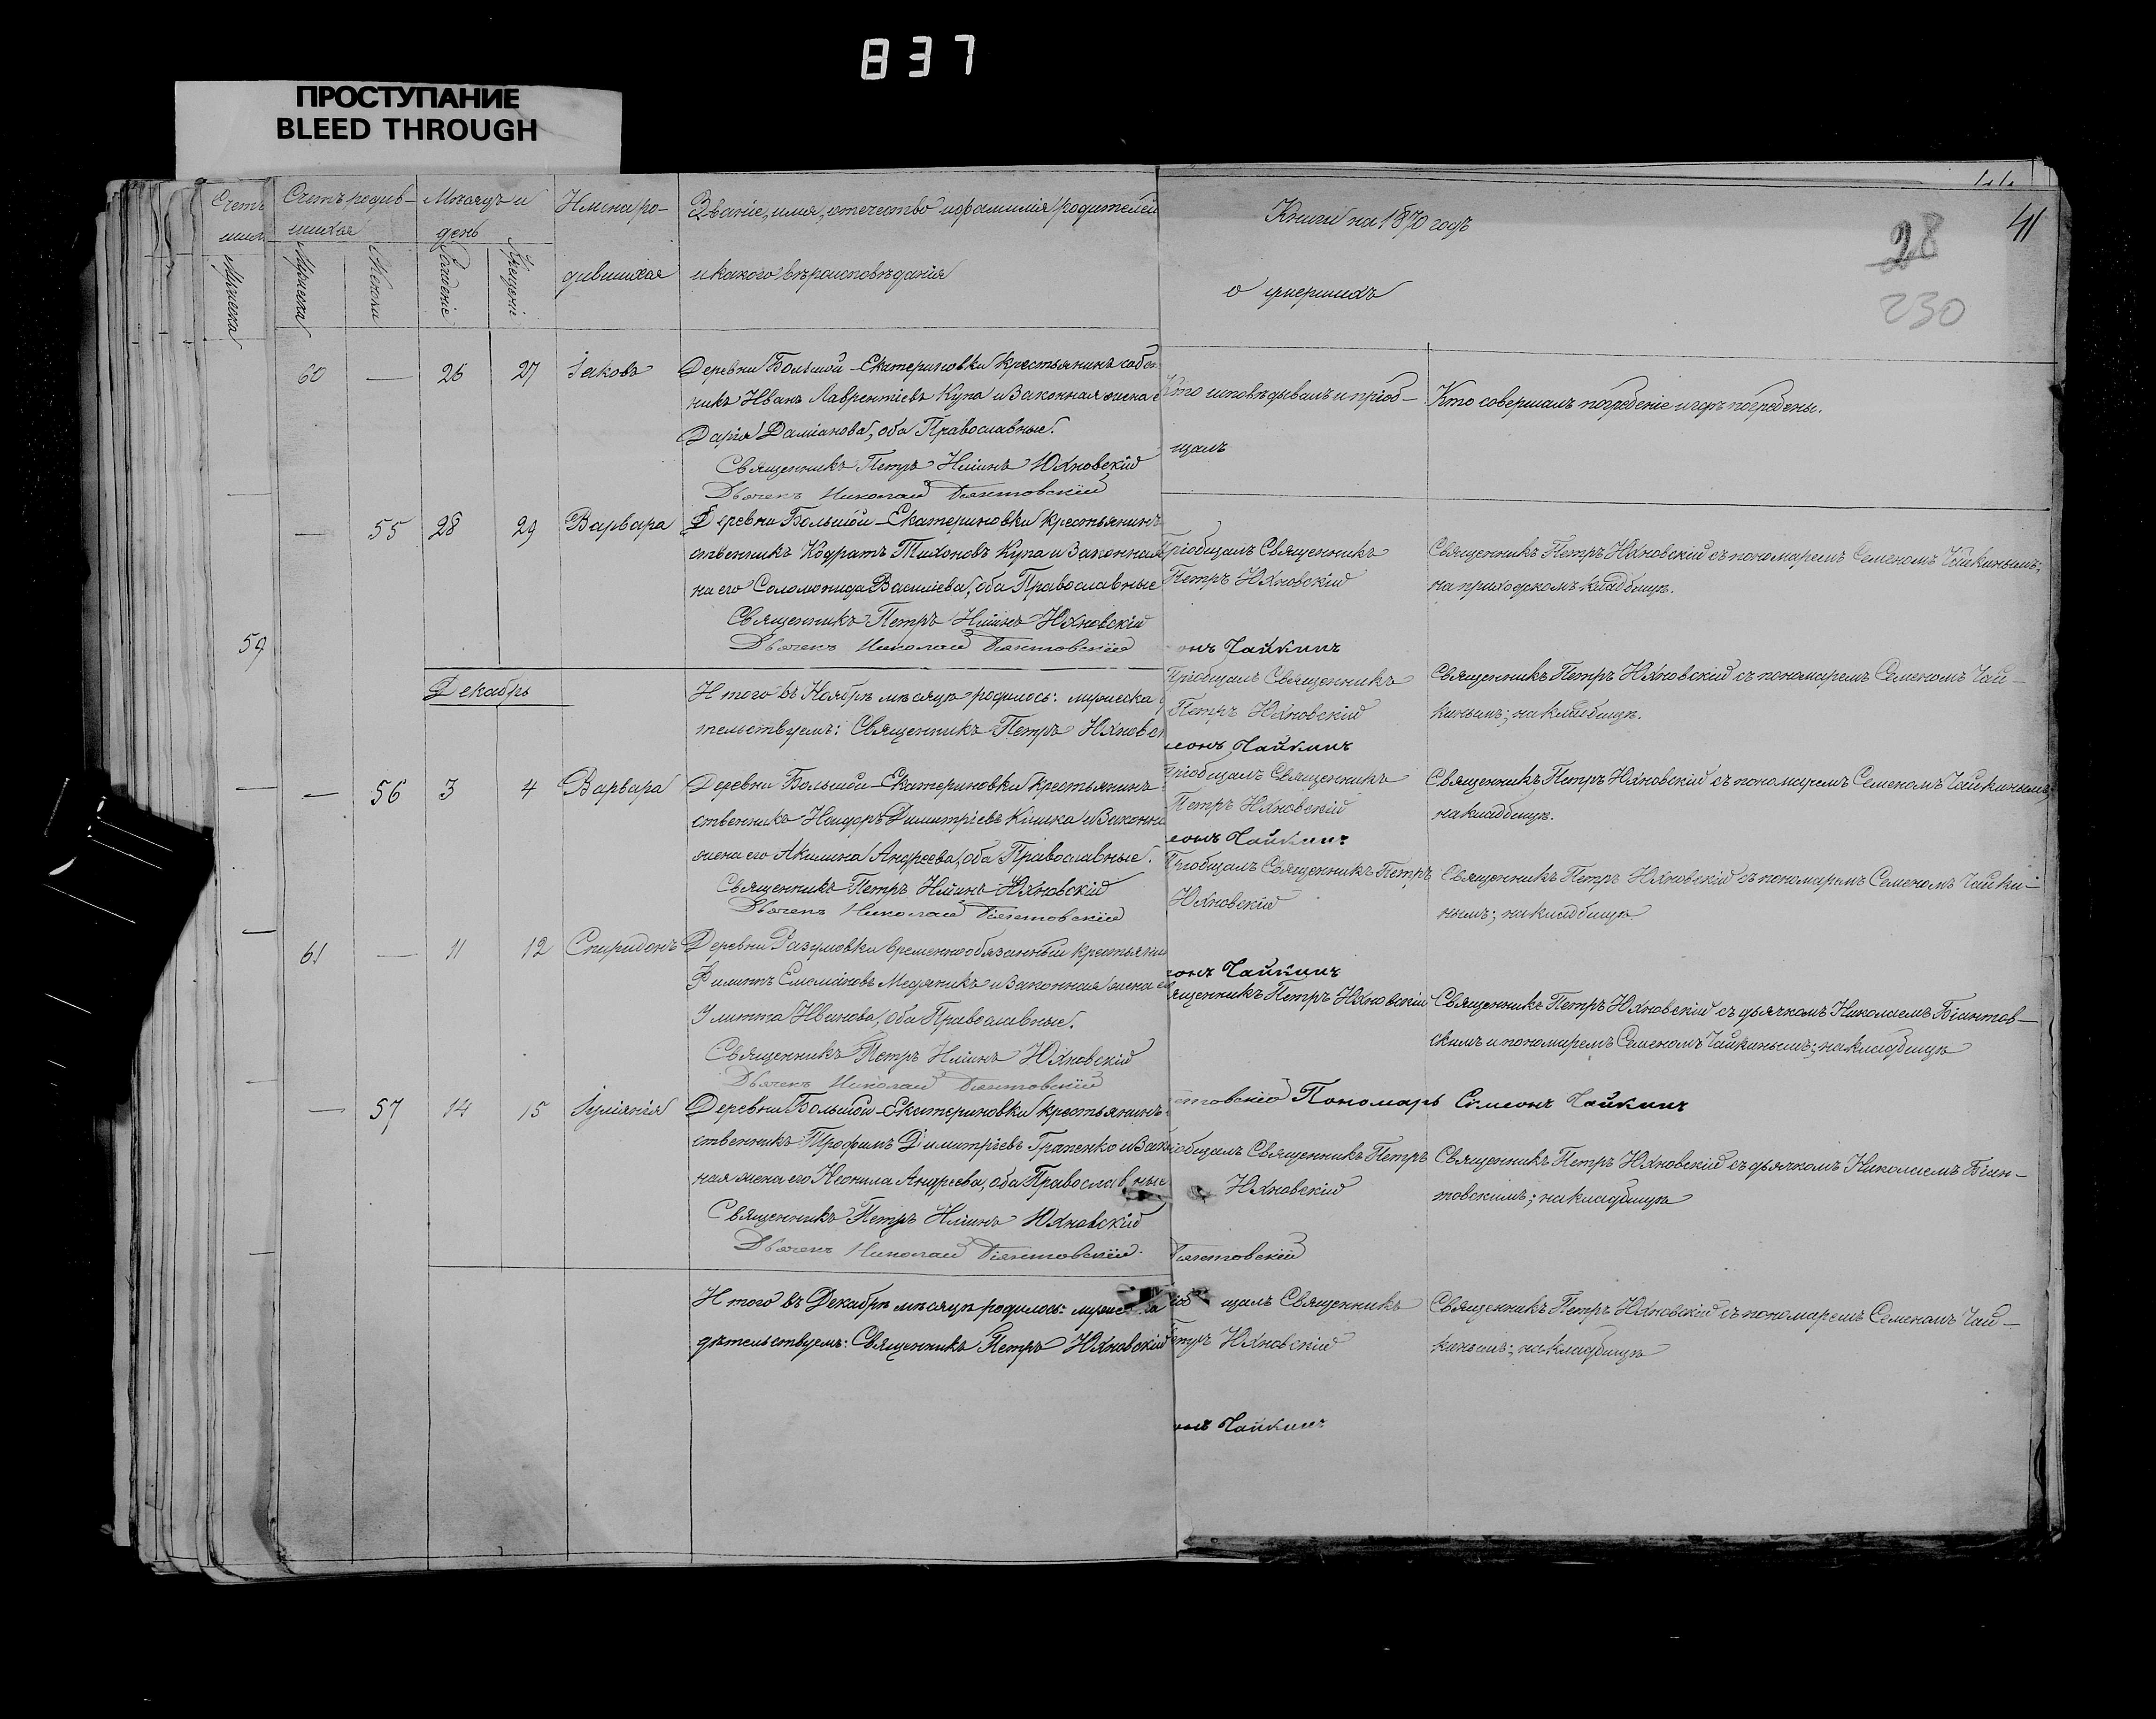 837
ПРОСТУПАНИЕ
BLEED THROUGH
Счетъ родив-
шихся
Мѣсяцъ и
день
Имена ро-
дившихся
Званіе, имя, отечество и фамилія родителей
и какого вѣроисповѣданія
Мужеска
Женски
Рожденіе
Крещеніе
60 — 26 27 Іаковъ Деревни Большой-Екатериновки крестьянинъ собст
никъ Иванъ Лаврентіевъ Купа и Законная жена е
Дарія Даміанова, оба Православные.
Священникъ Петръ Иліинъ Юхновскій
Дьячекъ Николай Біянтовскій
— 55 28 29 Варвара Деревни Большой-Екатериновки крестьянинъ
ственникъ Кодратъ Тихоновъ Купа и Законная
на его Соломонида Василіева, оба Православные
Священникъ Петръ Иліинъ Юхновскій
Дьячекъ Николай Біянтовскій
59
Декабрь
Итого въ Ноябрѣ мѣсяцѣ родилось: мужеска
тельствуемъ: Священникъ Петръ Юхновс
— 56 3 4 Варвара Деревни Большой-Екатериновки крестьянинъ
ственникъ Димитріевъ и Законна
жена его Акилина Андреева, оба Православные.
Священникъ Петръ Иліинъ Юхновскій
Дьячекъ Николай Біянтовскій
61 — 11 12 Спиридонъ Деревни Разумовки временнообязанный крестьянин
Филиппъ Медяникъ и Законная жена ег
Улитта Иванова, оба Православные.
Священникъ Петръ Иліинъ Юхновскій
Дьячекъ Николай Біянтовскій
— 57 14 15 Іуліянія Деревни Большой-Екатериновки крестьянинъ
ственникъ Трофимъ Димитріевъ Грапенко и Зак
ная жена его Неонила Андреева, оба Православные
Священникъ Петръ Иліинъ Юхновскій
Дьячекъ Николай Біянтовскій.
Итого въ Декабрѣ мѣсяцѣ родилось: мужеска
дѣтельствуемъ: Священникъ Петръ Юхновскій
Книги на 1870 годъ
о умершихъ
28
41
230
Кто исповѣдывалъ и пріоб-
щалъ
Кто совершалъ погребеніе и гдѣ погребены.
Пріобщалъ Священникъ
Петръ Юхновскій
Священникъ Петръ Юхновскій съ пономаремъ Семеномъ Чайкинымъ;
на приходскомъ кладбищѣ.
онъ Чайкинъ
Пріобщалъ Священникъ
Петръ Юхновскій
Священникъ Петръ Юхновскій съ пономаремъ Семеномъ Чай-
кинымъ; на кладбищѣ.
еонъ Чайкинъ
Пріобщалъ Священникъ
Петръ Юхновскій
Священникъ Петръ Юхновскій съ пономаремъ Семеномъ Чайкинымъ;
на кладбищѣ.
еонъ Чайкинъ
Пріобщалъ Священникъ Петръ
Юхновскій
Священникъ Петръ Юхновскій съ пономаремъ Семеномъ Чайки-
нымъ; на кладбищѣ
онъ Чайкинъ
ященникъ Петръ Юхновскій
Священникъ Петръ Юхновскій съ дьячкомъ Николаемъ Біянтов-
скимъ и пономаремъ Семеномъ Чайкинымъ; на кладбищѣ
нтовскій Пономарь Симеонъ Чайкинъ
іобщалъ Священникъ Петръ
Юхновскій
Священникъ Петръ Юхновскій съ дьячкомъ Николаемъ Біян-
товскимъ; на кладбищѣ
Біянтовскій
іобщалъ Священникъ
Петръ Юхновскій
Священникъ Петръ Юхновскій съ пономаремъ Семеномъ Чай-
кинымъ; на кладбищѣ
онъ Чайкинъ